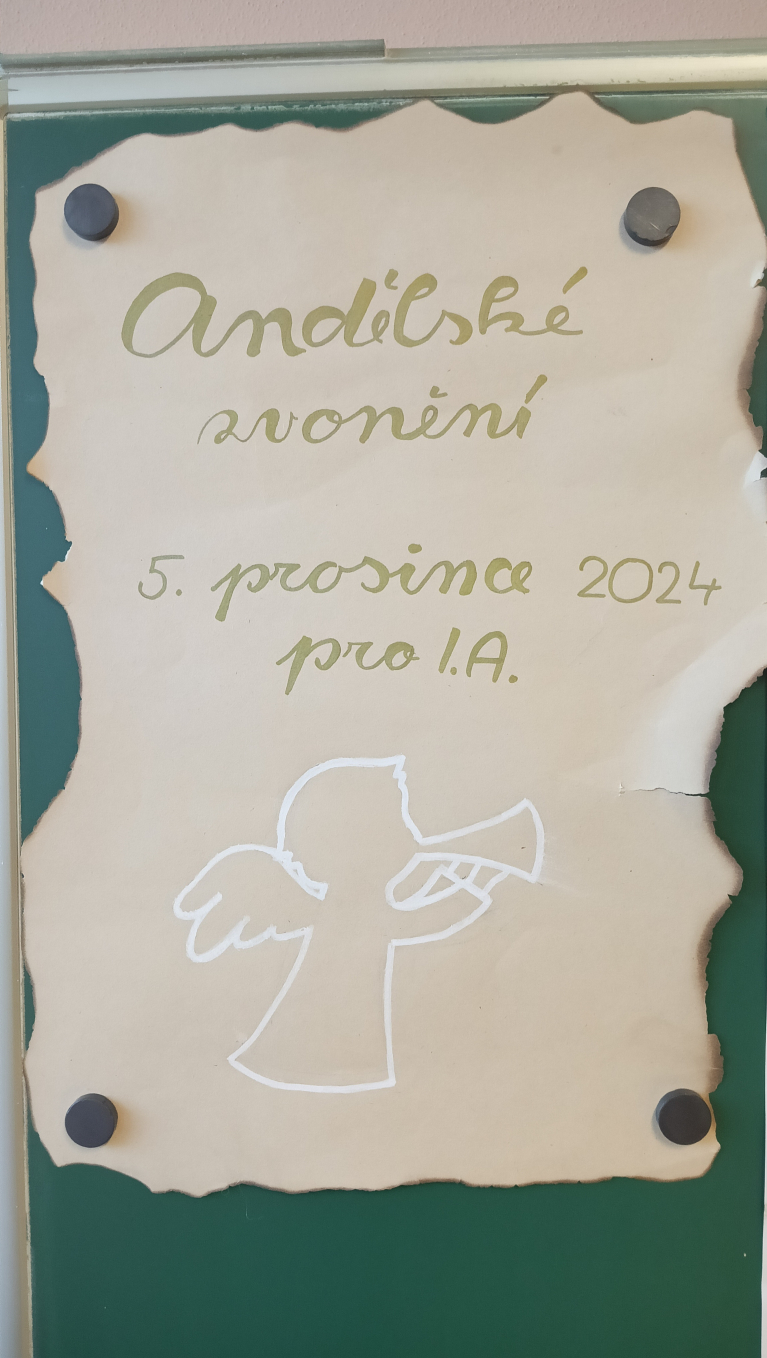 Andělské
zvonění
5. prosince 2024
pro I.A.